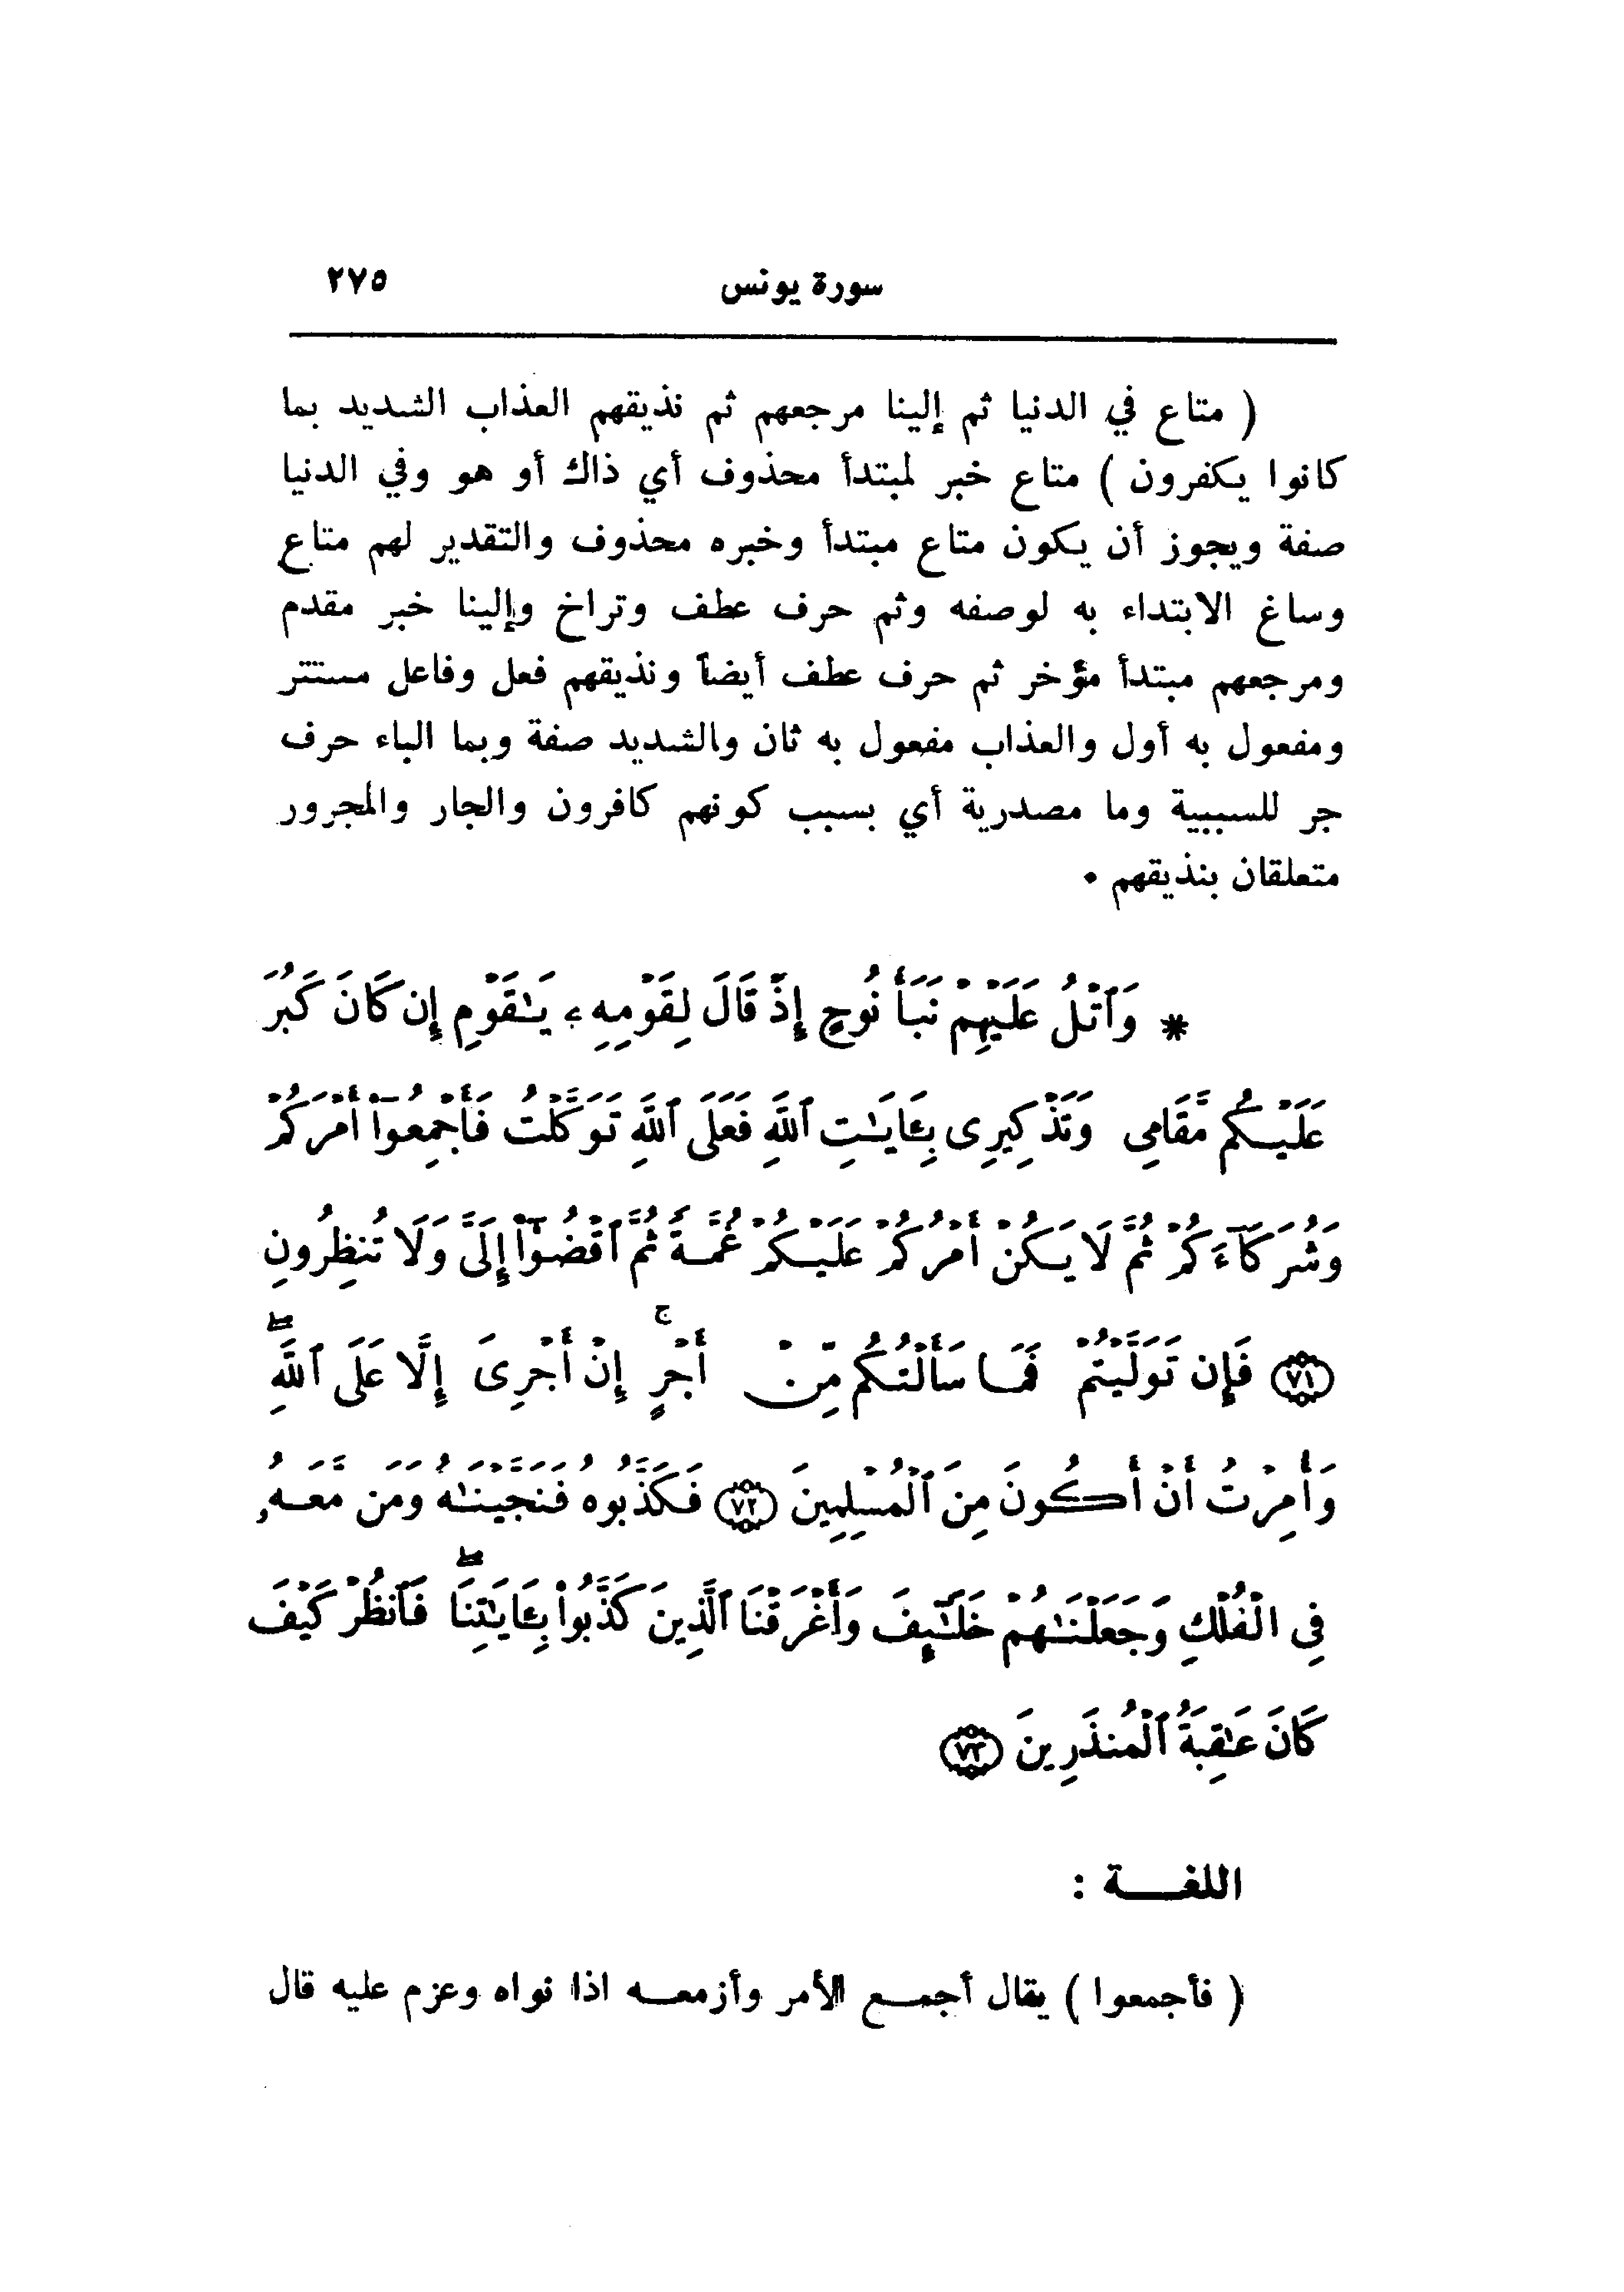 سورة يونس ٢٧٥
( متاع في الدنيا ثم إلينا مرجعهم ثم نذيقهم العذاب الشديد بما
كانوا يكفرون ) متاع خبر لمبتدأ محذوف أي ذاك أو هو وفي الدنيا
صفة ويجوز أن يكون متاع مبتدأ وخبره محذوف والتقدير لهم متاع
وساغ الابتداء به لوصفه وثم حرف عطف وتراخ وإلينا خبر مقدم
ومرجعهم مبتدأ مؤخر ثم حرف عطف أيضاً ونذيقهم فعل وفاعل مستتر
ومفعول به أول والعذاب مفعول به ثان والشديد صفة وبما الباء حرف
جر للسببية وما مصدرية أي بسبب كونهم كافرون والجار والمجرور
متعلقان بنذيقهم .
* وَٱتْلُ عَلَيْهِمْ نَبَأَ نُوحٍ إِذْ قَالَ لِقَوْمِهِۦ يَـٰقَوْمِ إِن كَانَ كَبُرَ
عَلَيْكُم مَّقَامِى وَتَذْكِيرِى بِـَٔايَـٰتِ ٱللَّهِ فَعَلَى ٱللَّهِ تَوَكَّلْتُ فَأَجْمِعُوٓا۟ أَمْرَكُمْ
وَشُرَكَآءَكُمْ ثُمَّ لَا يَكُنْ أَمْرُكُمْ عَلَيْكُمْ غُمَّةً ثُمَّ ٱقْضُوٓا۟ إِلَىَّ وَلَا تُنظِرُونِ
﴿٧١﴾ فَإِن تَوَلَّيْتُمْ فَمَا سَأَلْتُكُم مِّنْ أَجْرٍ ۚ إِنْ أَجْرِىَ إِلَّا عَلَى ٱللَّهِ ۖ
وَأُمِرْتُ أَنْ أَكُونَ مِنَ ٱلْمُسْلِمِينَ ﴿٧٢﴾ فَكَذَّبُوهُ فَنَجَّيْنَـٰهُ وَمَن مَّعَهُۥ
فِى ٱلْفُلْكِ وَجَعَلْنَـٰهُمْ خَلَـٰٓئِفَ وَأَغْرَقْنَا ٱلَّذِينَ كَذَّبُوا۟ بِـَٔايَـٰتِنَا ۖ فَٱنظُرْ كَيْفَ
كَانَ عَـٰقِبَةُ ٱلْمُنذَرِينَ ﴿٧٣﴾
اللغـــة :
( فأجمعوا ) يقال أجمـع الأمر وأزمعـه اذا نواه وعزم عليه قال